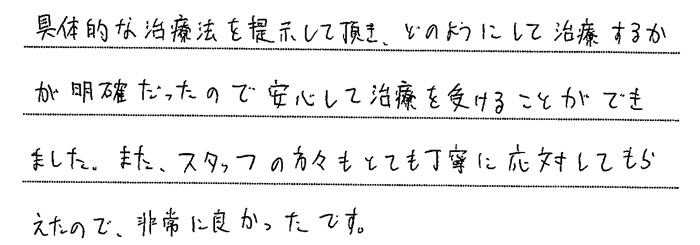 具体的な治療法を提示して頂き、どのようにして治療するか
が明確だったので安心して治療を受けることができ
ました。また、スタッフの方々もとても丁寧に応対してもら
えたので、非常に良かったです。